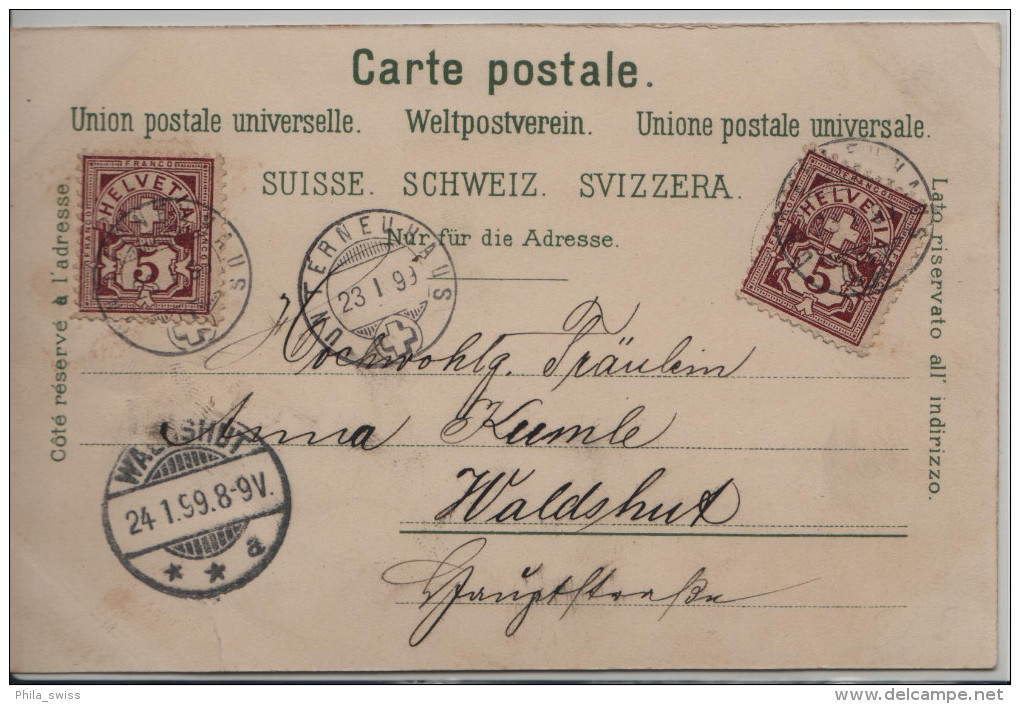 Carte postale.
Union postale universelle. Weltpostverein. Unione postale universale.
SUISSE. SCHWEIZ. SVIZZERA.
Nur für die Adresse.
Côté réservé à l'adresse.
Lato riservato all' indirizzo.
FRANCO
HELVETIA
FRANCO
FRANCO
5
FRANCO
HELVETIA
5
UNTERNEUHAUS
23 I 99
Hochwohlg. Fräulein
Anna Kumle
Waldshut
Hauptstraße
WALDSHUT
24.1.99.8-9V.
* * a
Phila_swiss
www.delcampe.net